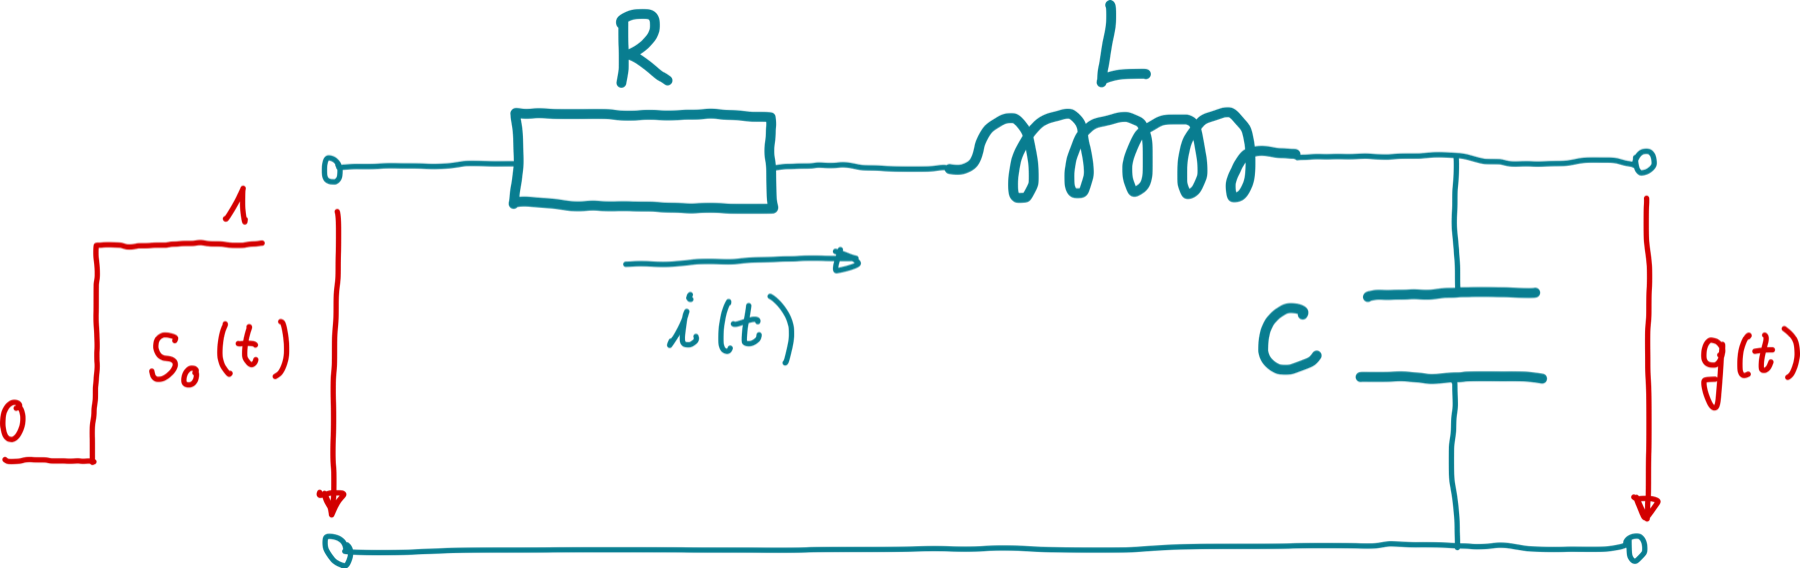 R
L
1
S₀(t)
0
i(t)
C
g(t)